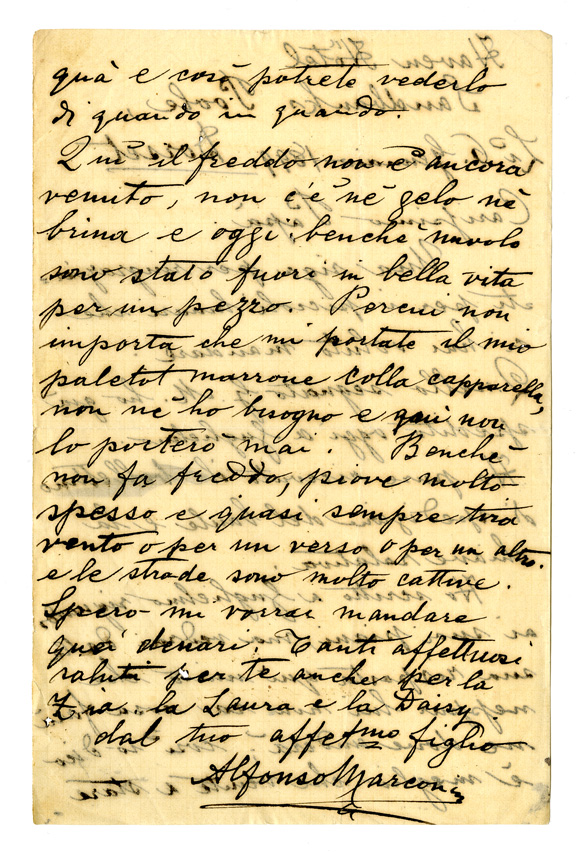 quà e così potrete vederlo
di quando in quando.
Qui il freddo non è ancora
venuto, non c'è nè gelo nè
brina e oggi benchè nuvolo
sono stato fuori in bella vita
per un pezzo. Percui non
importa che mi portate il mio
paletot marrone colla capparella,
non nè ho bisogno e quì non
lo porterò mai. Benchè
non fa freddo, piove molto
spesso e quasi sempre tira
vento o per un verso o per un altro
e le strade sono molto cattive.
Spero mi vorrai mandare
quei denari. Tanti affettuosi
saluti per te anche per la
Zia, la Laura e la Daisy
dal tuo affetmo figlio
Alfonso Marconi